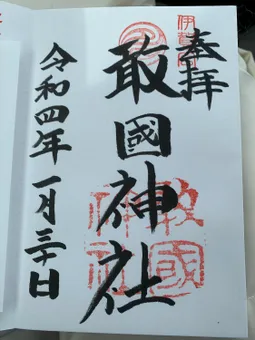 伊賀
奉拝
敢國神社
敢國
神社
令和四年一月三十日